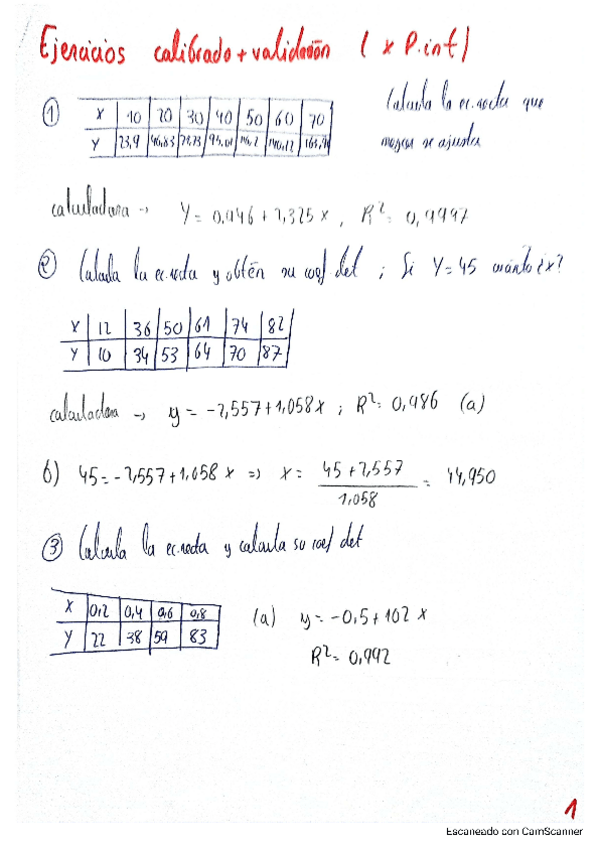 Ejercicios calibrado + validación ( x P.int)
① Calcula la ec.recta que
mejor se ajusta
X 10 20 30 40 50 60 70
Y 23,9 46,83 140,12
calculadora → Y = 0,446 + 2,325 x , R² = 0,9997
② Calcula la ec.recta y obtén su coef det ; Si Y=45 cuánto ¿x?
X 12 36 50 61 74 82
Y 10 34 53 64 70 87
calculadora → y = -2,557 + 1,058 x ; R² = 0,986 (a)
b) 45 = -2,557 + 1,058 x => x = 45 + 2,557 / 1,058 = 44,950
③ Calcula la ec.recta y calcula su coef det
X 0,2 0,4 0,6 0,8 (a) y = -0,5 + 102 x
Y 22 38 59 83
R² = 0,992
1
Escaneado con CamScanner